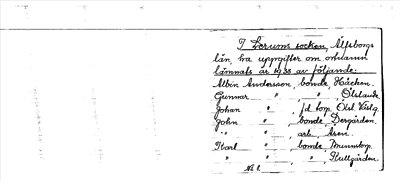 I Lerums socken, Älfsborgs
län, ha uppgifter om ortnamn
lämnats år 1938 av följande:
Albin Andersson, bonde, Häcken.
Gunnar " " , Ölslanda.
Johan " , f.d. kop. Öxl Västg.
John " , bonde, Dergården.
" " , arb., Åsen.
Karl " , bonde,
" " , " , Kullgården.
No 1.